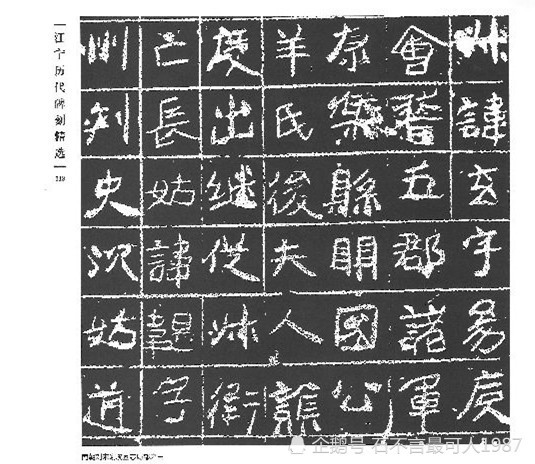 叔諱玄字度
會稽五郡諸軍
康樂縣開國公
羊氏後夫人譙
出继從叔衛
亡長姑諱韞字
州刾史次姑道
江宁历代碑刻精选
企鹅号 石不言最可人1987